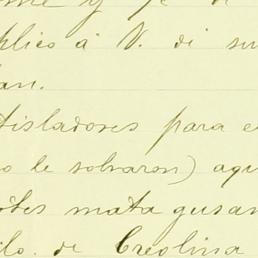 y fe de
plico á V. di su
an.
Aisladores para e
o le sobraron) aqu
otes mata gusan
ilo. de Creolina